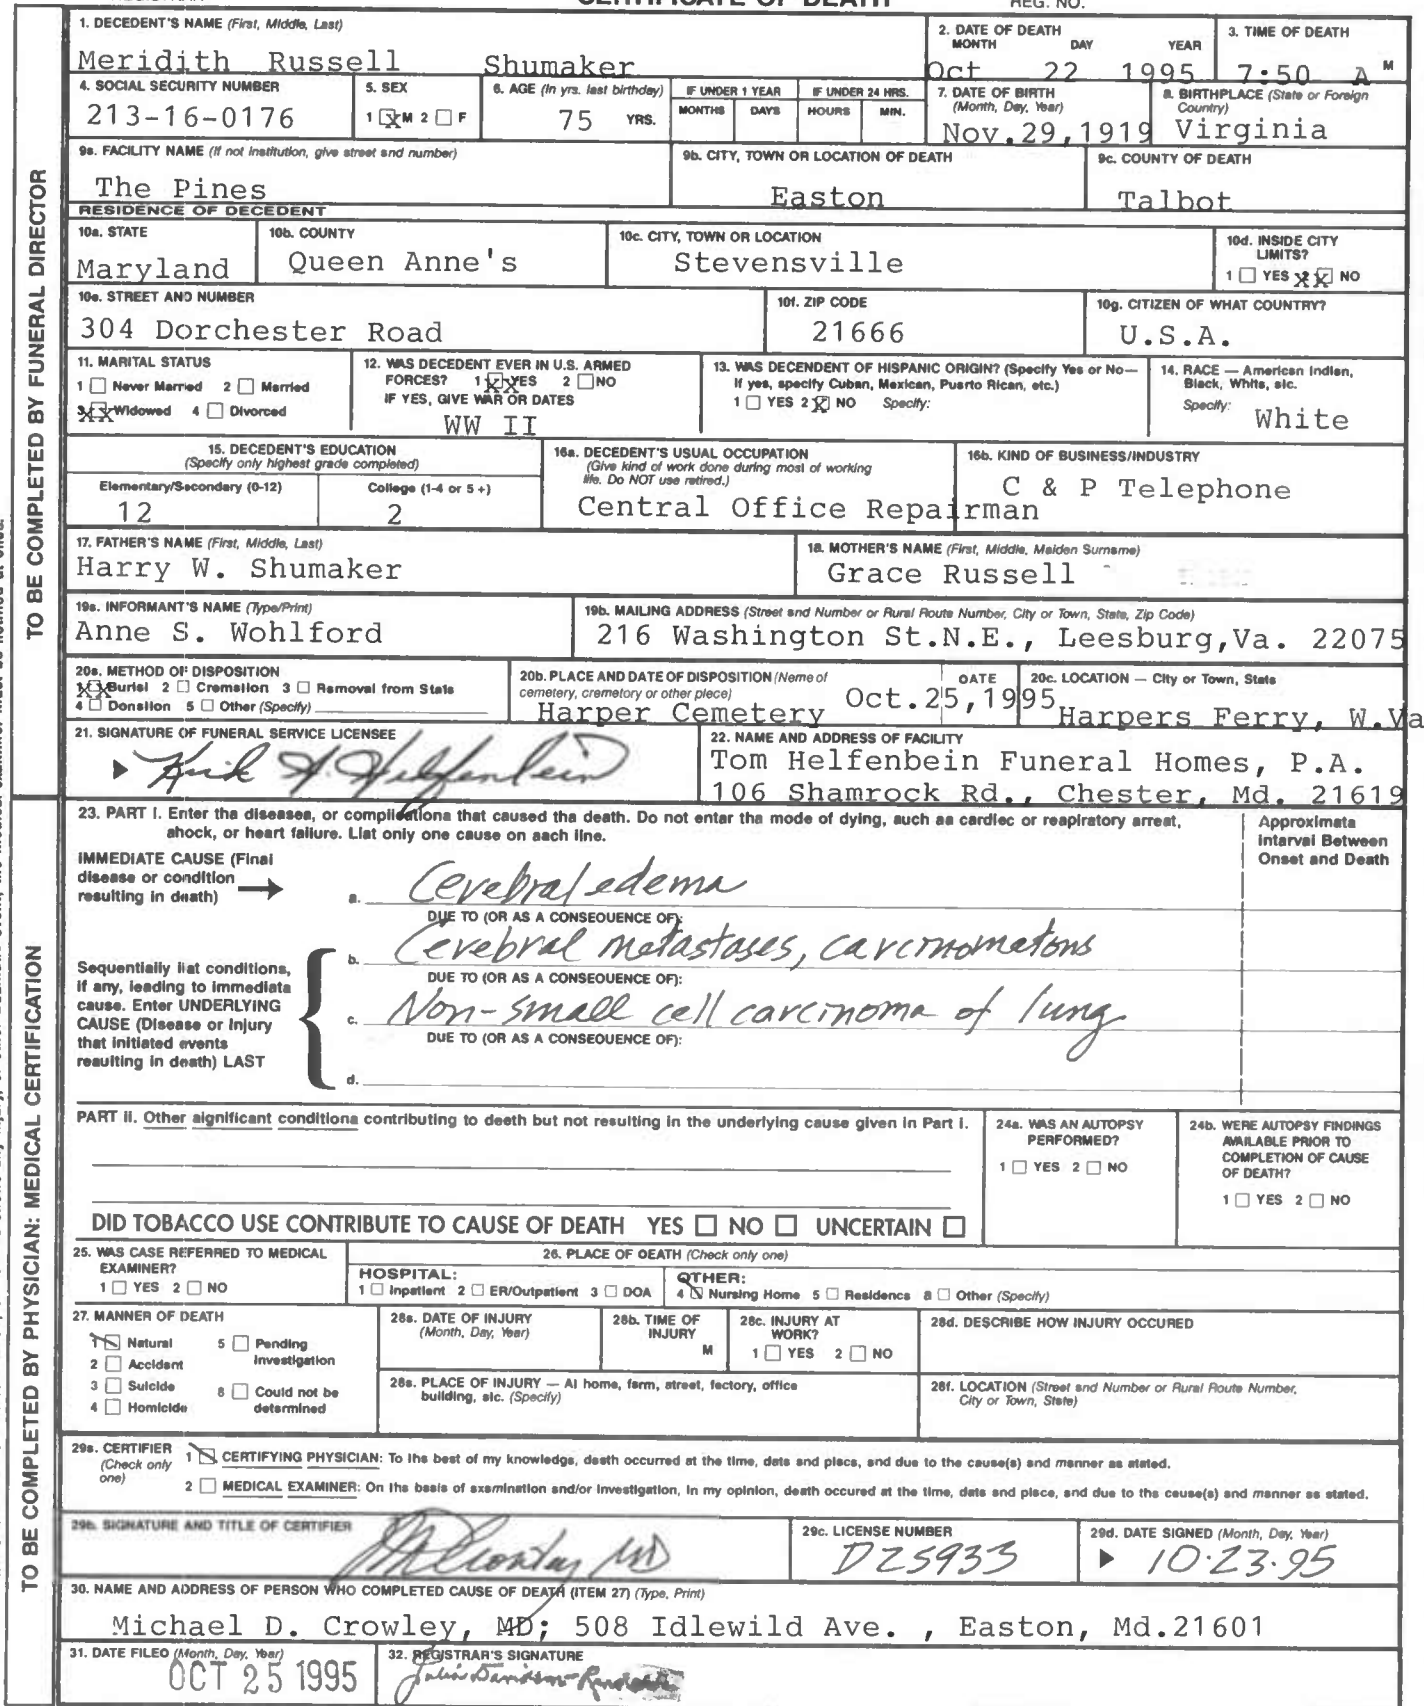 CERTIFICATE OF DEATH
REG. NO.
1. DECEDENT'S NAME (First, Middle, Last)
Meridith Russell Shumaker
2. DATE OF DEATH
MONTH DAY YEAR
Oct 22 1995
3. TIME OF DEATH
7:50 A M
4. SOCIAL SECURITY NUMBER
213-16-0176
5. SEX
1 X M 2 F
6. AGE (In yrs. last birthday)
75 YRS.
IF UNDER 1 YEAR
MONTHS DAYS
IF UNDER 24 HRS.
HOURS MIN.
7. DATE OF BIRTH
(Month, Day, Year)
Nov.29,1919
8. BIRTHPLACE (State or Foreign
Country)
Virginia
9a. FACILITY NAME (If not institution, give street and number)
The Pines
9b. CITY, TOWN OR LOCATION OF DEATH
Easton
9c. COUNTY OF DEATH
Talbot
RESIDENCE OF DECEDENT
10a. STATE
Maryland
10b. COUNTY
Queen Anne's
10c. CITY, TOWN OR LOCATION
Stevensville
10d. INSIDE CITY
LIMITS?
1 YES XX NO
10e. STREET AND NUMBER
304 Dorchester Road
10f. ZIP CODE
21666
10g. CITIZEN OF WHAT COUNTRY?
U.S.A.
11. MARITAL STATUS
1 Never Married 2 Married
XX Widowed 4 Divorced
12. WAS DECEDENT EVER IN U.S. ARMED
FORCES? 1 XX YES 2 NO
IF YES, GIVE WAR OR DATES
WW II
13. WAS DECENDENT OF HISPANIC ORIGIN? (Specify Yes or No—
If yes, specify Cuban, Mexican, Puerto Rican, etc.)
1 YES 2 X NO Specify:
14. RACE — American Indian,
Black, White, etc.
Specify: White
15. DECEDENT'S EDUCATION
(Specify only highest grade completed)
Elementary/Secondary (0-12)
12
College (1-4 or 5+)
2
16a. DECEDENT'S USUAL OCCUPATION
(Give kind of work done during most of working
life. Do NOT use retired.)
Central Office Repairman
16b. KIND OF BUSINESS/INDUSTRY
C & P Telephone
17. FATHER'S NAME (First, Middle, Last)
Harry W. Shumaker
18. MOTHER'S NAME (First, Middle, Maiden Surname)
Grace Russell
19a. INFORMANT'S NAME (Type/Print)
Anne S. Wohlford
19b. MAILING ADDRESS (Street and Number or Rural Route Number, City or Town, State, Zip Code)
216 Washington St.N.E., Leesburg,Va. 22075
20a. METHOD OF DISPOSITION
XX Burial 2 Cremation 3 Removal from State
4 Donation 5 Other (Specify)
20b. PLACE AND DATE OF DISPOSITION (Name of
cemetery, crematory or other place)
Harper Cemetery
DATE
Oct.25,1995
20c. LOCATION — City or Town, State
Harpers Ferry, W.Va
21. SIGNATURE OF FUNERAL SERVICE LICENSEE
Kirk A. Helfenbein
22. NAME AND ADDRESS OF FACILITY
Tom Helfenbein Funeral Homes, P.A.
106 Shamrock Rd., Chester, Md. 21619
TO BE COMPLETED BY FUNERAL DIRECTOR
23. PART I. Enter the diseases, or complications that caused the death. Do not enter the mode of dying, such as cardiac or respiratory arrest,
shock, or heart failure. List only one cause on each line.
Approximate
Interval Between
Onset and Death
IMMEDIATE CAUSE (Final
disease or condition
resulting in death)
a. Cerebral edema
DUE TO (OR AS A CONSEQUENCE OF):
Sequentially list conditions,
if any, leading to immediate
cause. Enter UNDERLYING
CAUSE (Disease or Injury
that initiated events
resulting in death) LAST
b. Cerebral metastases, carcinomatous
DUE TO (OR AS A CONSEQUENCE OF):
c. Non-small cell carcinoma of lung
DUE TO (OR AS A CONSEQUENCE OF):
d.
PART II. Other significant conditions contributing to death but not resulting in the underlying cause given in Part I.
24a. WAS AN AUTOPSY
PERFORMED?
1 YES 2 NO
24b. WERE AUTOPSY FINDINGS
AVAILABLE PRIOR TO
COMPLETION OF CAUSE
OF DEATH?
1 YES 2 NO
DID TOBACCO USE CONTRIBUTE TO CAUSE OF DEATH YES NO UNCERTAIN
25. WAS CASE REFERRED TO MEDICAL
EXAMINER?
1 YES 2 NO
26. PLACE OF DEATH (Check only one)
HOSPITAL:
1 Inpatient 2 ER/Outpatient 3 DOA
OTHER:
4 Nursing Home 5 Residence 6 Other (Specify)
27. MANNER OF DEATH
1 Natural 5 Pending
Investigation
2 Accident
3 Suicide 6 Could not be
determined
4 Homicide
28a. DATE OF INJURY
(Month, Day, Year)
28b. TIME OF
INJURY
M
28c. INJURY AT
WORK?
1 YES 2 NO
28d. DESCRIBE HOW INJURY OCCURED
28e. PLACE OF INJURY — At home, farm, street, factory, office
building, etc. (Specify)
28f. LOCATION (Street and Number or Rural Route Number,
City or Town, State)
29a. CERTIFIER
(Check only
one)
1 CERTIFYING PHYSICIAN: To the best of my knowledge, death occurred at the time, date and place, and due to the cause(s) and manner as stated.
2 MEDICAL EXAMINER: On the basis of examination and/or investigation, in my opinion, death occured at the time, date and place, and due to the cause(s) and manner as stated.
29b. SIGNATURE AND TITLE OF CERTIFIER
MD
29c. LICENSE NUMBER
D25933
29d. DATE SIGNED (Month, Day, Year)
10-23-95
30. NAME AND ADDRESS OF PERSON WHO COMPLETED CAUSE OF DEATH (ITEM 27) (Type, Print)
Michael D. Crowley, MD; 508 Idlewild Ave. , Easton, Md.21601
31. DATE FILED (Month, Day, Year)
OCT 25 1995
32. REGISTRAR'S SIGNATURE
TO BE COMPLETED BY PHYSICIAN: MEDICAL CERTIFICATION